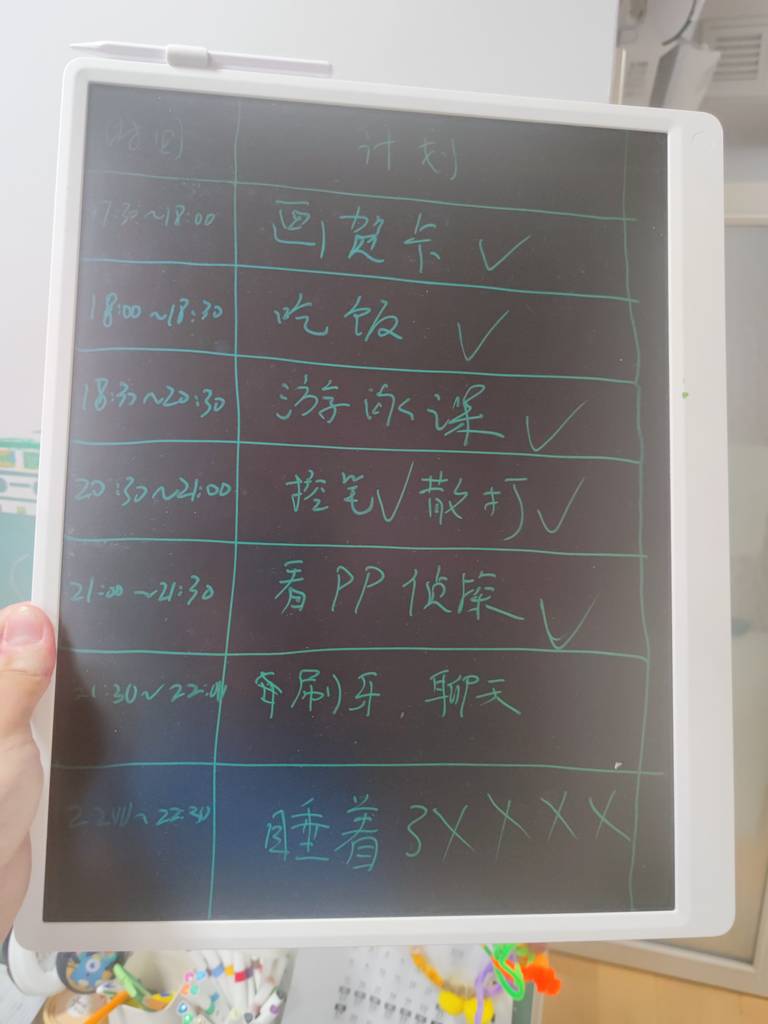 时间 计划
17:30~18:00 画贺卡 ✓
18:00~18:30 吃饭 ✓
18:30~20:30 游泳课 ✓
20:30~21:00 控笔✓散打✓
21:00~21:30 看PP侦探 ✓
21:30~22:00 刷牙、聊天
22:00~22:30 睡着了XXXX